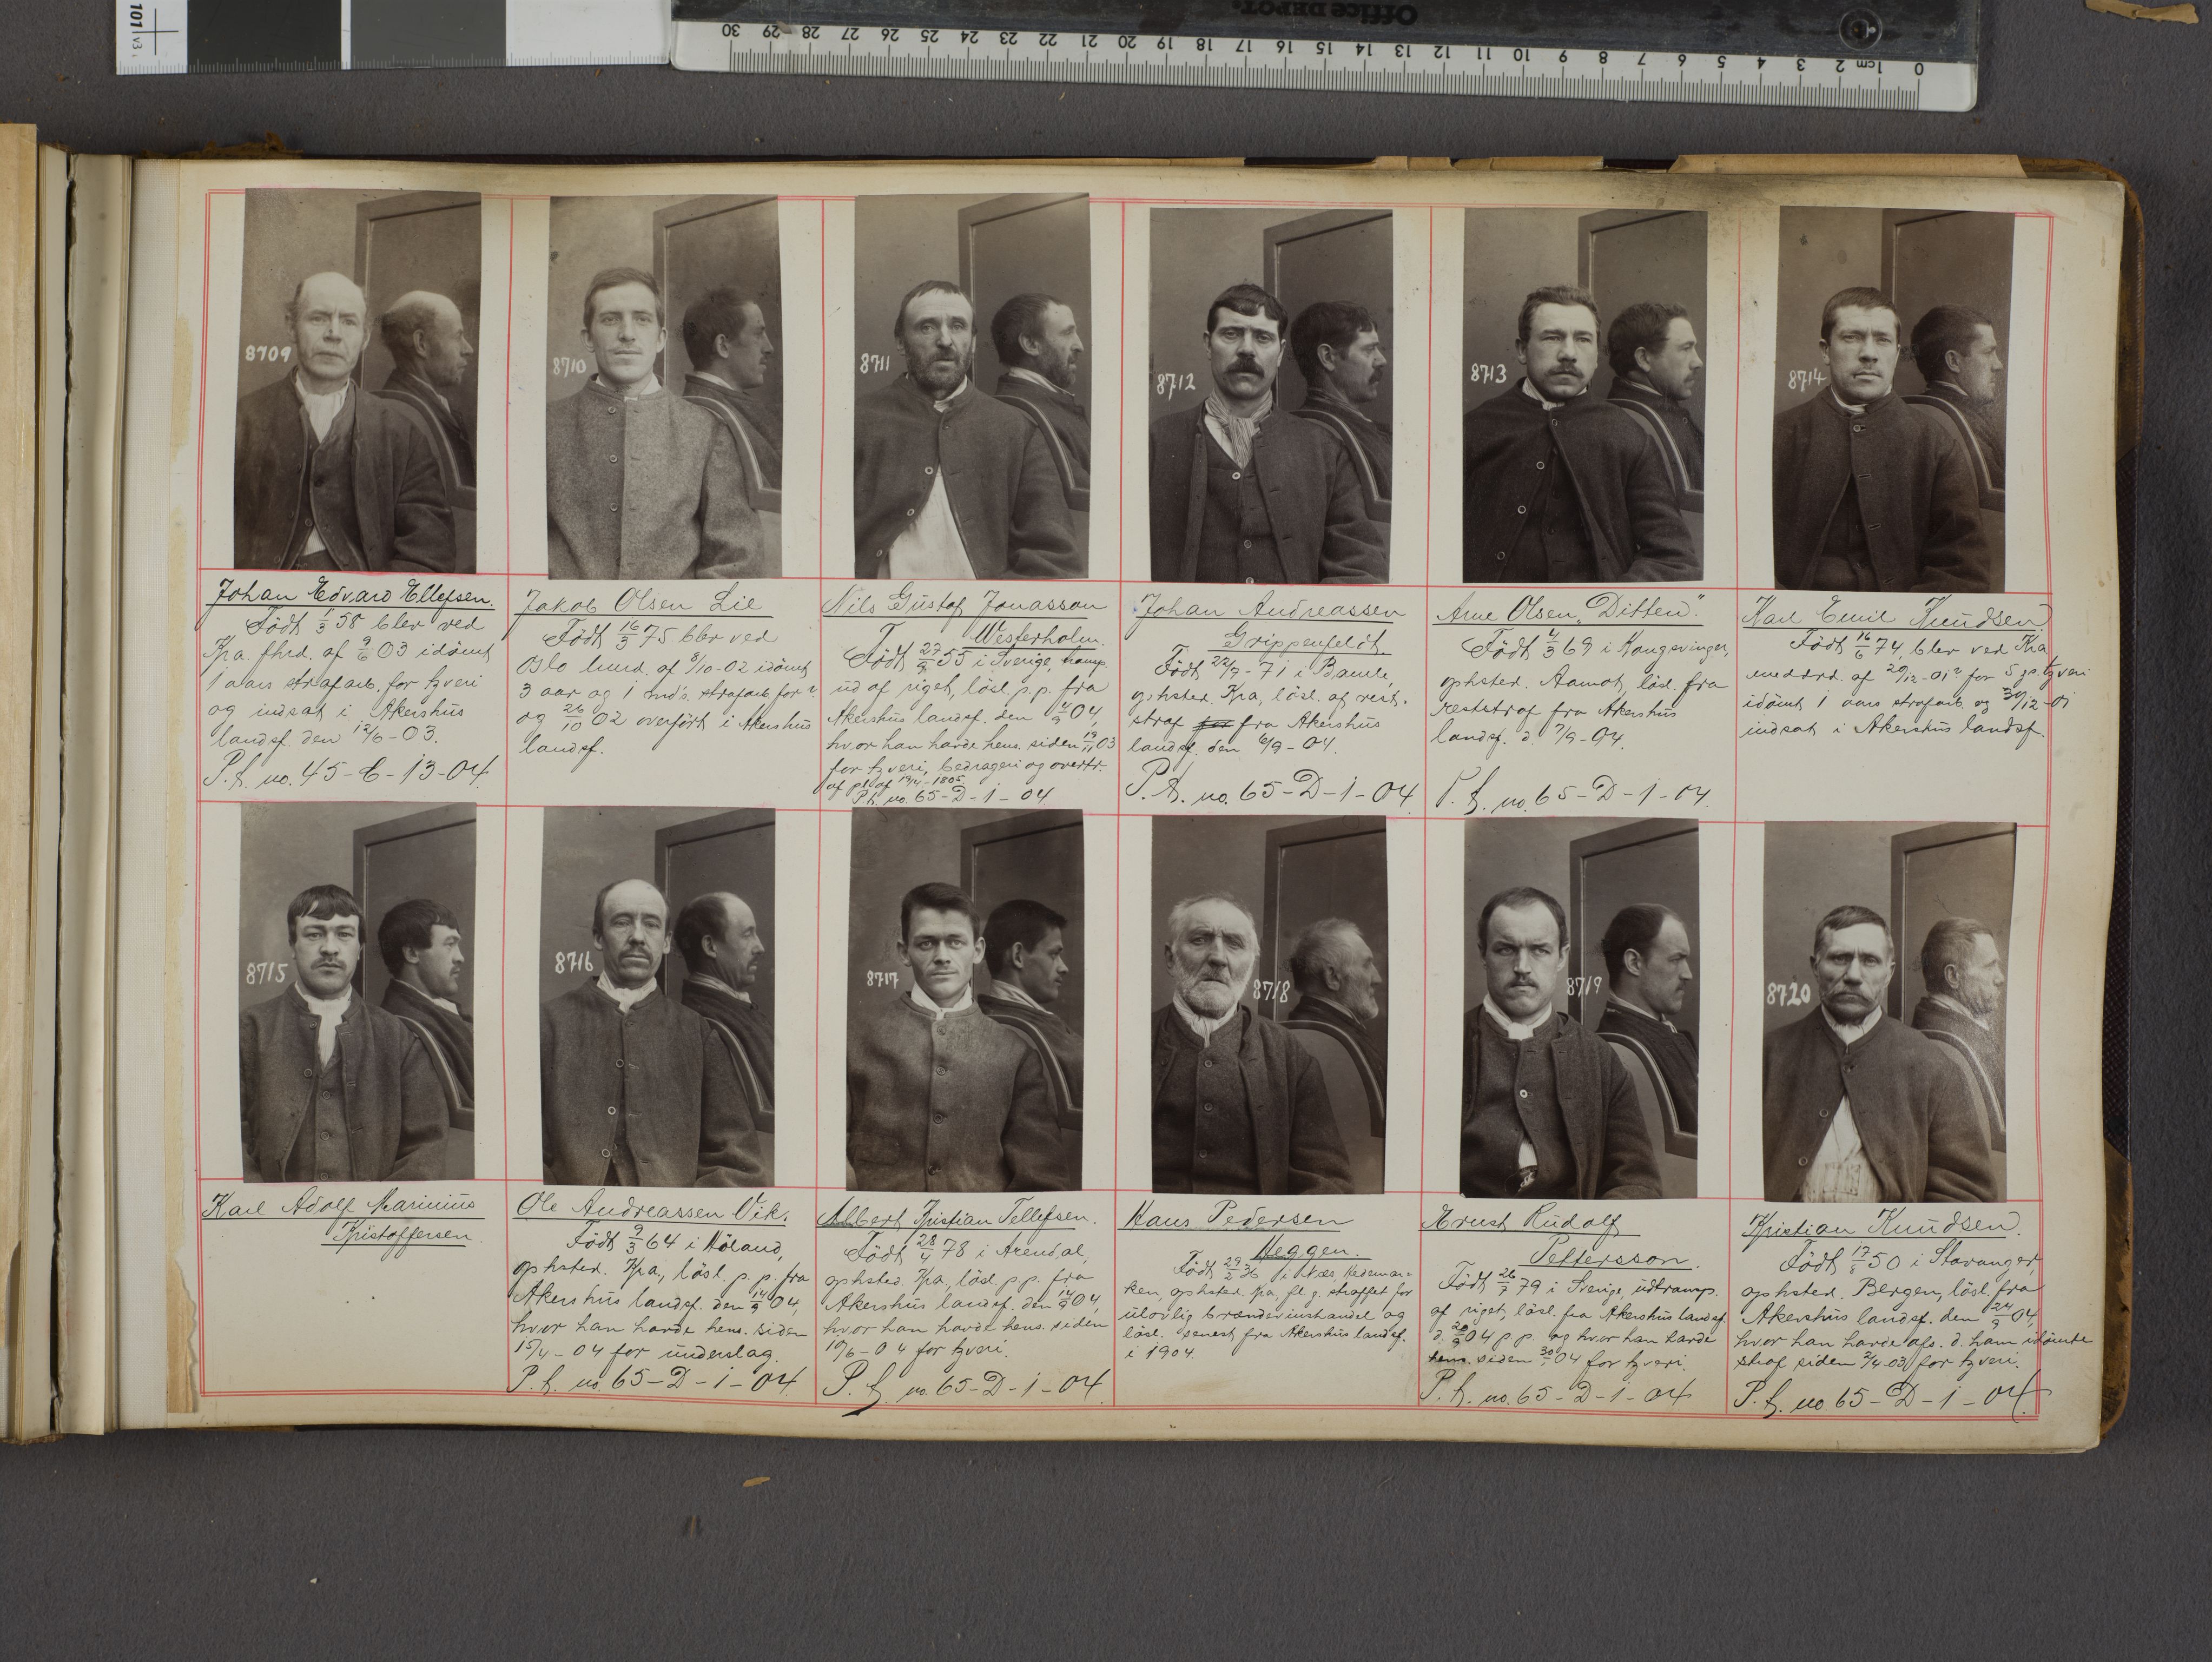 101 v3
Office DEPOT.
30 29 28 27 26 25 24 23 22 21 20 19 18 17 16 15 14 13 12 11 10 9 8 7 6 5 4 3 2 1cm 0
8709
Johan Edvard Ellefsen.
Födt 1/3 58 blev ved
Kra. fhrd. af 9/6 03 idömt
1 aars strafarb. for tyveri
og indsat i Akershus
landsf. den 12/6-03.
P.h. no. 45-C-13-04.
8710
Jakob Olsen Lie
Födt 16/3 75 blev ved
Oslo lmrd. af 8/10-02 idömt
3 aar og 1 md's. strafarb. for
og 26/10 02 overfört i Akershus
landsf.
8711
Nils Gustaf Jonasson
Westerholm.
Födt 27/9 55 i Sverige, tramp.
ud af riget, lösl. p.p. fra
Akershus landsf. den 4/9 04,
hvor han havde hens. siden 19/11 03
for tyveri, bedrageri og overtr.
af pl. af 19/4-1805.
P.h. no. 65-D-1-04
8712
Johan Andreassen
Grippenfeldt.
Födt 22/7-71 i Bamle,
ophsted. Kra, lösl. af rest.
straf fra Akershus
landsf. den 6/9-04.
P.h. no. 65-D-1-04
8713
Arne Olsen "Ditten".
Födt 4/3 69 i Kongsvinger,
ophsted. Aamot, lösl. fra
reststraf fra Akershus
landsf. d. 7/9-04.
P.h. no. 65-D-1-04.
8714
Karl Emil Knudsen
Födt 16/6 74, blev ved Kra
meddrd. af 20/12-01 for 5 gs. tyveri
idömt 1 aars strafarb. og 30/12-01
indsat i Akershus landsf.
8715
Karl Adolf Marinius
Kristoffersen.
8716
Ole Andreassen Vik.
Födt 9/3 64 i Höland,
ophsted. Kra, lösl. p.p. fra
Akershus landsf. den 14/9 04,
hvor han havde hens. siden
15/4-04 for underslag.
P.h. no. 65-D-1-04.
8717
Albert Kristian Tellefsen.
Födt 28/4 78 i Arendal,
ophsted. Kra, lösl. p.p. fra
Akershus landsf. den 14/9 04,
hvor han havde hens. siden
10/6-04 for tyveri.
P.h. no. 65-D-1-04
8718
Hans Pedersen
Heggen.
Födt 29/2 36 i Næs, Hedemar-
ken, ophsted. Kra, fl. g. straffet for
ulovlig brændevinshandel og
lösl. senest fra Akershus landsf.
i 1904.
8719
Ernst Rudolf
Pettersson.
Födt 26/7 79 i Sverige, udtramp.
af riget, lösl. fra Akershus landsf.
d. 20/9 04 p p. og hvor han havde
hens. siden 04 for tyveri.
P.h. no. 65-D-1-04
8720
Kristian Knudsen.
Födt 50 i Stavanger,
ophsted. Bergen, lösl. fra
Akershus landsf. den 24/9 04,
hvor han havde afs. d. ham idömte
straf siden 2/4 03 for tyveri.
P.h. no. 65-D-1-04.